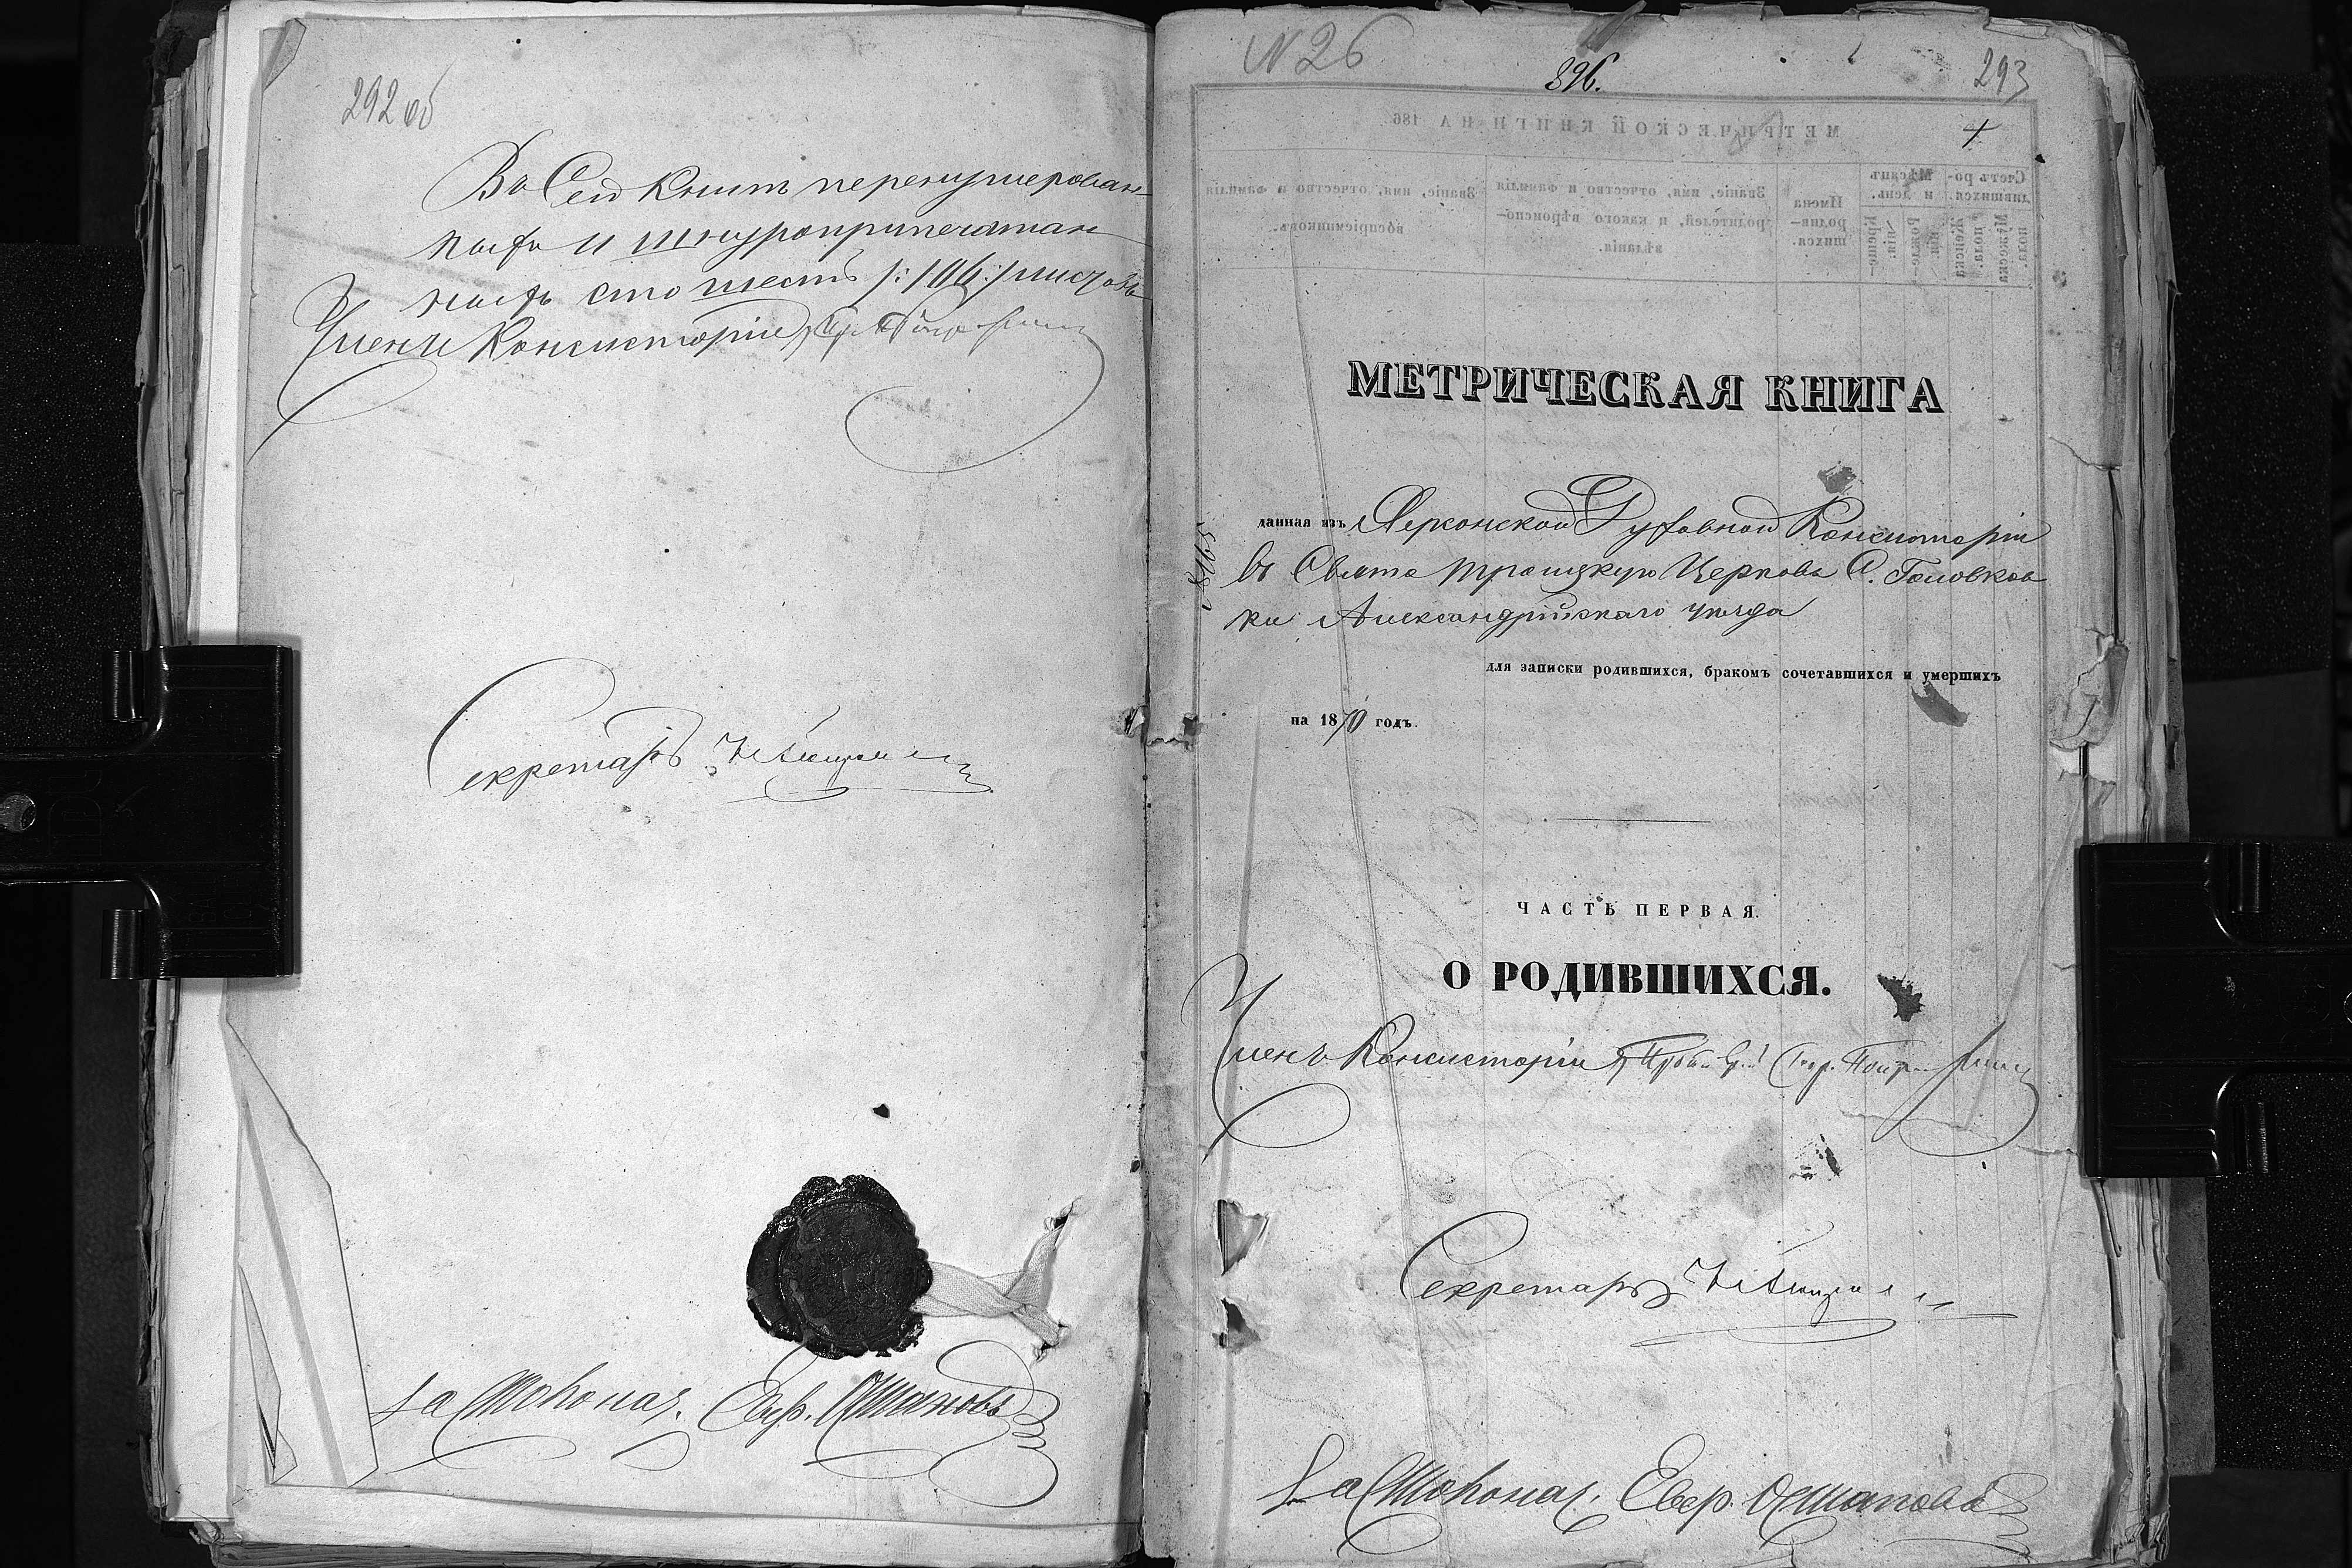 292 об
Въ Сей Книгѣ перенумерован
ныхъ и шнуроприпечатан
ныхъ сто шесть /:106:/ листовъ
Членъ Консисторіи
Секретарь
За Столонач. Евф. Осташовъ
N 26
896.
293
+
МЕТРИЧЕСКОЙ КНИГИ НА 186
Счетъ ро-
дившихся.
Мѣсяцъ
и день.
Имена
родив-
шихся.
Званіе, имя, отчество и фамилія
родителей, и какого вѣроиспо-
вѣданія.
Званіе, имя, отчество и фамилія
воспріемниковъ.
МЕТРИЧЕСКАЯ КНИГА
данная изъ Херсонской Духовной Консисторіи
въ Свято Троицкую Церковь С. Головков
ки Александрійскаго уѣзда
для записки родившихся, бракомъ сочетавшихся и умершихъ
на 1870 годъ.
ЧАСТЬ ПЕРВАЯ.
О РОДИВШИХСЯ.
Членъ Консисторіи
Секретарь
За Столонач. Евф.